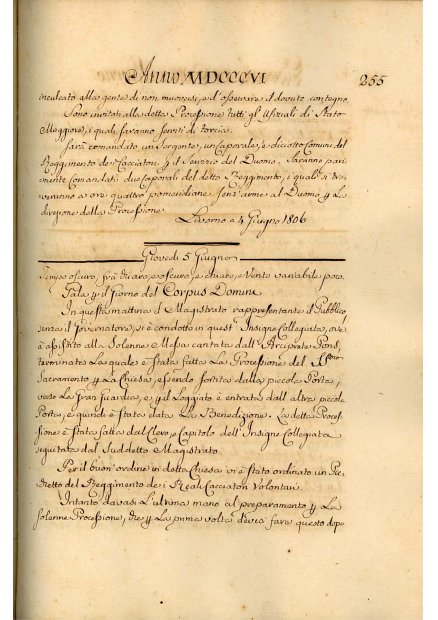 Anno MDCCCVI 255
inculcato alla gente di non muoversi, e d'osservare il dovuto contegno
Sono invitati alla detta Processione tutti gl'Ufiziali di Stato
Maggiore, i quali saranno serviti di torcia.
Sarà comandato un Sergente, un Caporale, e diciotto Comuni del
Reggimento de' Cacciatori p il Servizio del Duomo. Saranno pari
mente Comandati due Caporali del detto Reggimento, i quali si tro
veranno a ore quattro pomeridiane senz'arme al Duomo p La
direzione della Processione
Livorno a 4 Giugno 1806
Giovedì 5 Giugno
Tempo oscuro, fra chiaro, e oscuro, e chiaro, e Vento variabile, poco
Gala p il Giorno del Corpus Domini
In questa mattina il Magistrato rappresentante il Pubblico,
senza il Governatore, si è condotto in quest'Insigne Collegiata, ove
à assistito alla Solenne Messa cantata dall'Arciprete Pons,
terminata La quale è stata fatta La Processione del SSmo
Sacramento p La Chiesa, essendo sortita dalla piccola Porta,
verso La Gran Guardia, e p il Loggiato è entrata dall'altra piccola
Porta, e quindi è stata data La Benedizione. La detta Proces
sione è stata fatta dal Clero, e Capitolo dell'Insigne Collegiata
seguitata dal Suddetto Magistrato.
Per il buon'ordine in detta Chiesa vi è stato ordinato un Pic
chetto del Reggimento de i Reali Cacciatori Volontari
Intanto davasi L'ultima mano al preparamento p La
solenne Processione, che p La prima volta devesi fare questo dopo